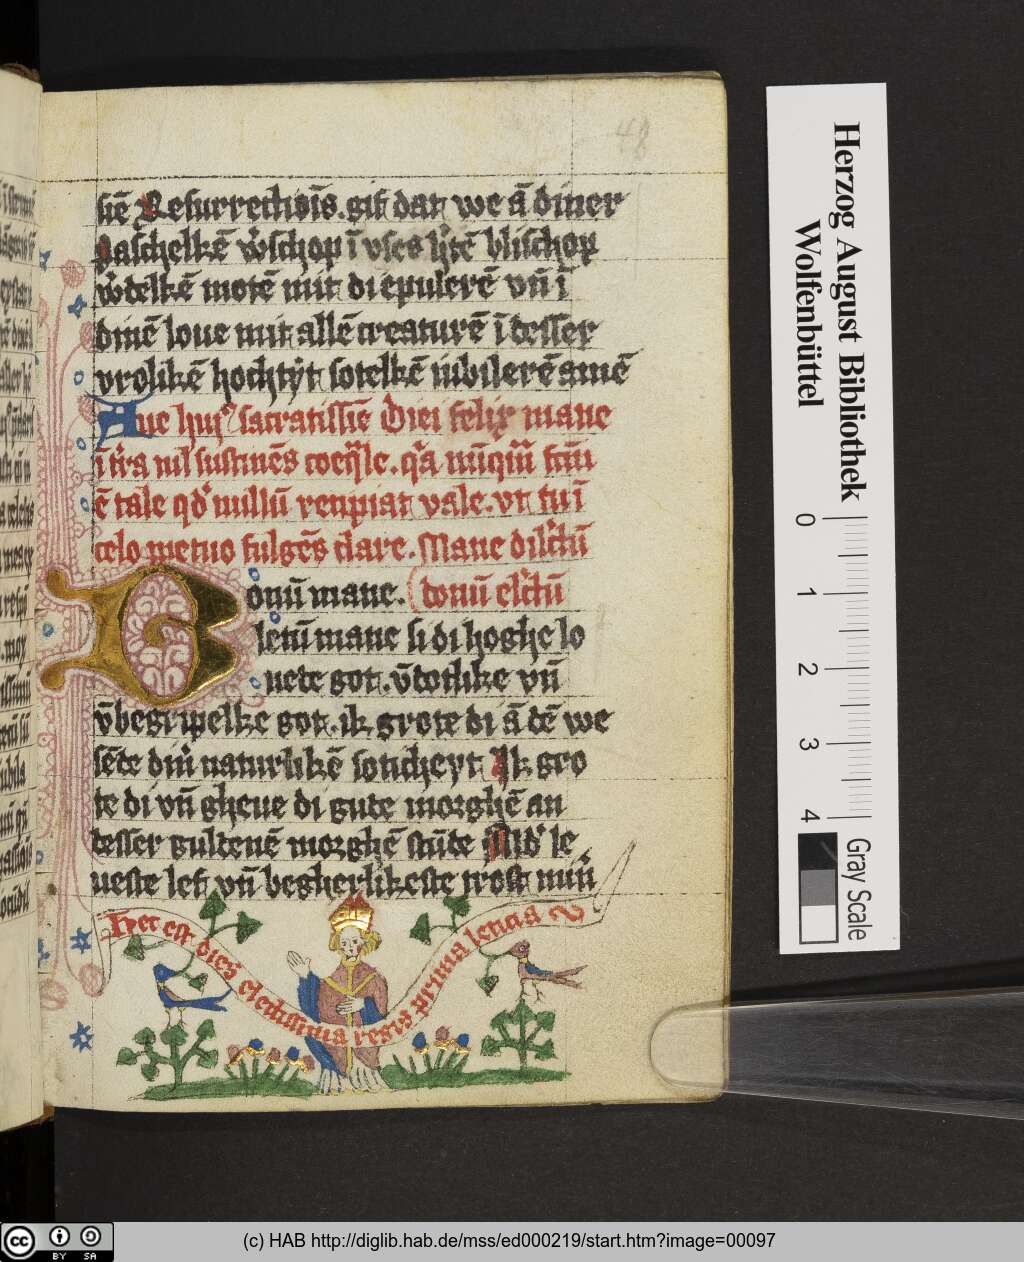 48
siē Resurrectiōis. gif dat we ā diner
paschelkē w̉schop ī vses h̉tē blischop
w̉delkē motē mit di epulerē vn̄ ī
dinē loue mit allē creaturē ī desser
vrolikē hochtyt sotelkē iubilerē amē
Aue hui⁹ sacratissīe diei felix mane
ī t̉ra nil sustinēs coeq̄le. q̄a nūq̄m
ē tale qd̉ nullū recipiat vale. vt tu ī
celo metuo fulgēs clare. Mane dil̉ctū
Bonū mane. donū el̉ctū
letū mane si di hoghe lo
uede got. v̄dotlike vn̄
v̄begripelke got. ik grote di ā dē we
sēde din̉ naturlikē soticheyt Ik gro
te di vn̄ gheue di gute morghē an
desser guldenē morghē stūde Mid̉ le
ueste lef vn̄ begherlikeste trost min̄
Hec est dies electissima regis prima leticia
Herzog August Bibliothek
Wolfenbüttel
0 1 2 3 4
Gray Scale
cc BY SA
(c) HAB http://diglib.hab.de/mss/ed000219/start.htm?image=00097